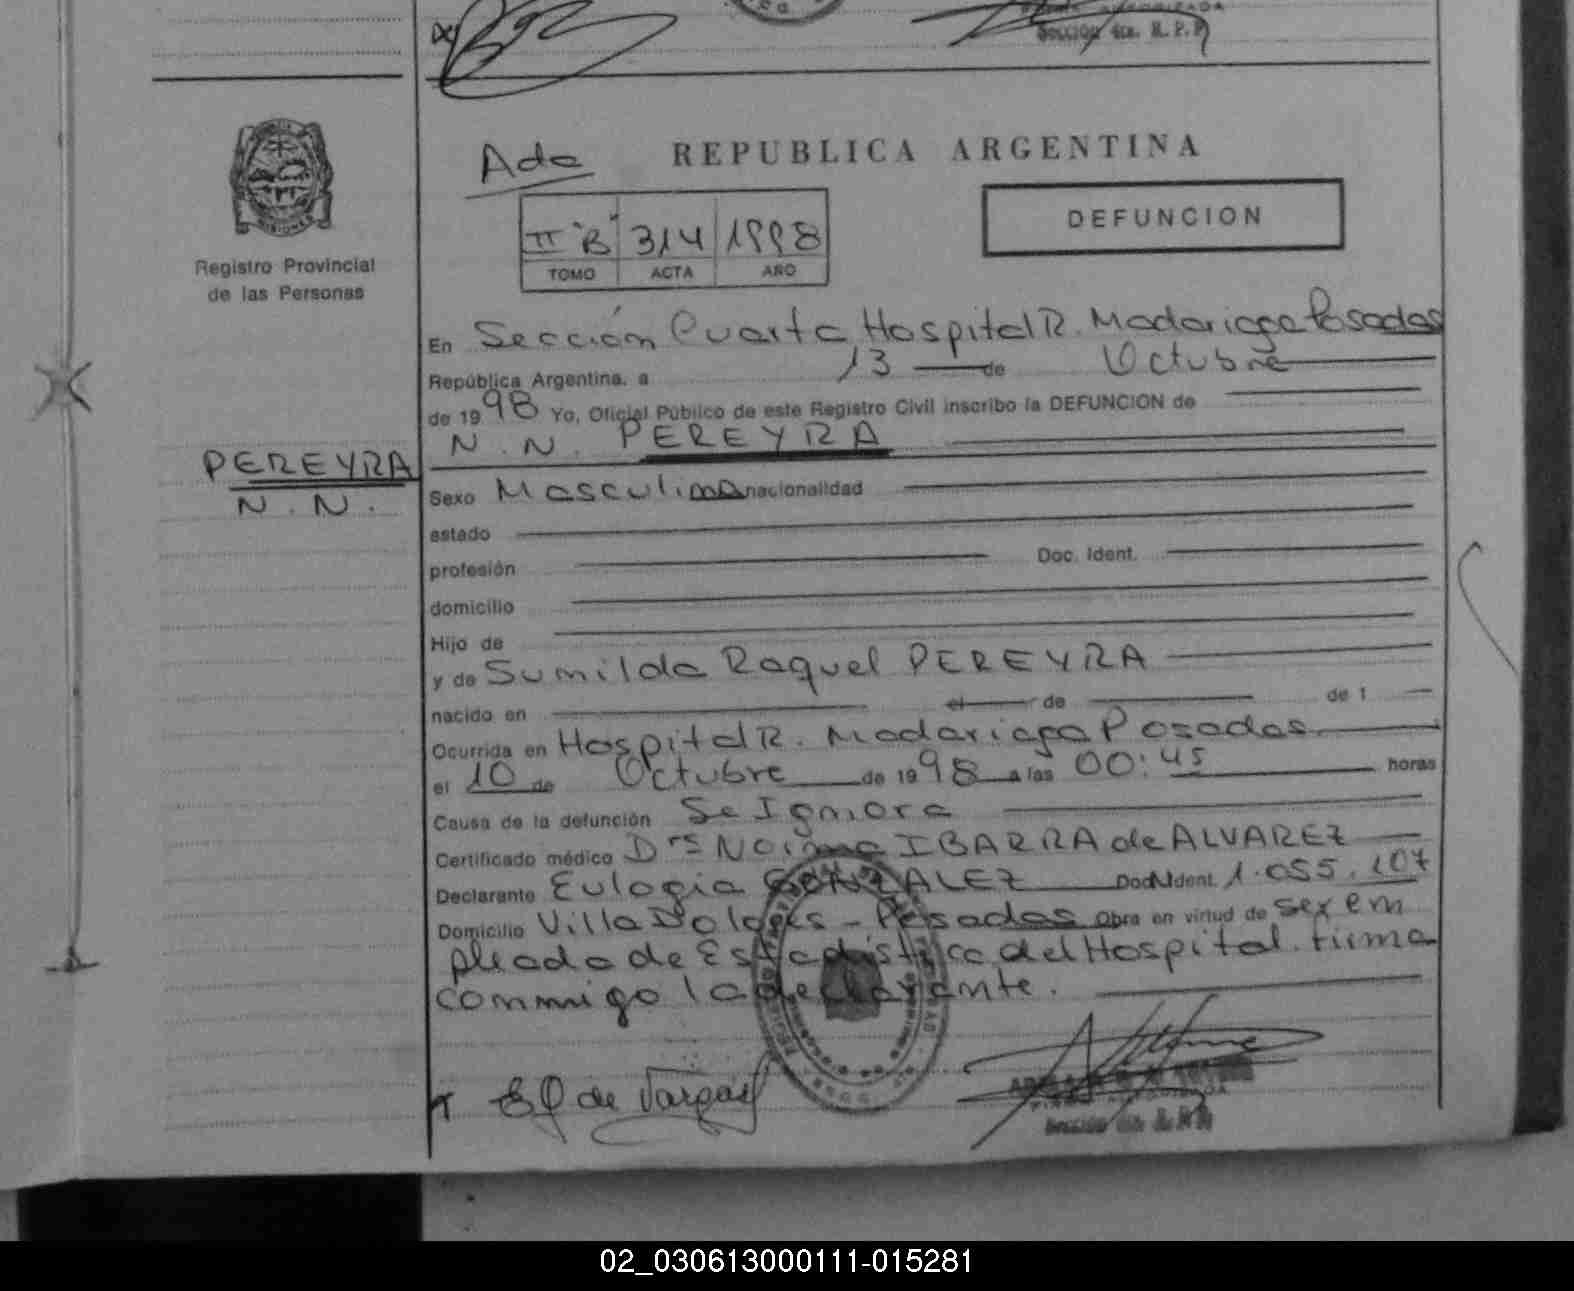 Sección 4ta. R.P.P
REPUBLICA ARGENTINA
DEFUNCION
II "B" 314 1998
TOMO ACTA AÑO
Registro Provincial
de las Personas
PEREYRA
N. N.
En Sección Cuarta Hospital R. Madariaga Posadas
República Argentina, a 13 de Octubre
de 1998 Yo, Oficial Público de este Registro Civil inscribo la DEFUNCION de
N. N. PEREYRA
Sexo Masculino nacionalidad
estado
profesión Doc. Ident.
domicilio
Hijo de
y de Sumilda Raquel PEREYRA
nacido en el de de 1
Ocurrida en Hospital R. Madariaga Posadas
el 10 de Octubre de 1998 a las 00:45 horas
Causa de la defunción Se Ignora
Certificado médico Drª Norma IBARRA de ALVAREZ
Declarante Eulogia GONZALEZ Doc. Ident. 1.055.107
Domicilio Villa Dolores - Posadas Obra en virtud de ser em
pleada de Estadística del Hospital. Firma
conmigo la declarante.
EG de Vargas
02_030613000111-015281